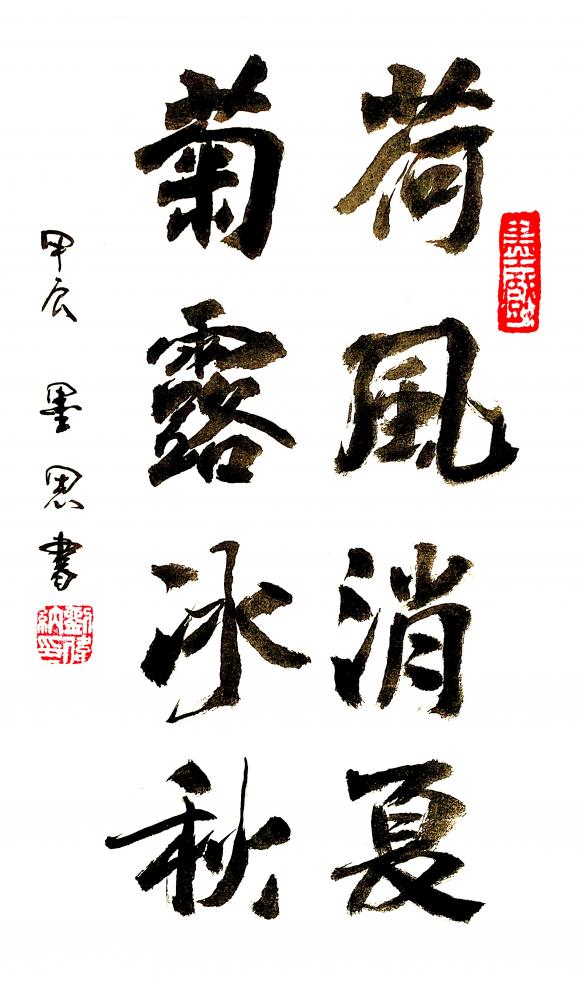 荷風消夏
菊露冰秋
甲辰 墨思書
墨戲